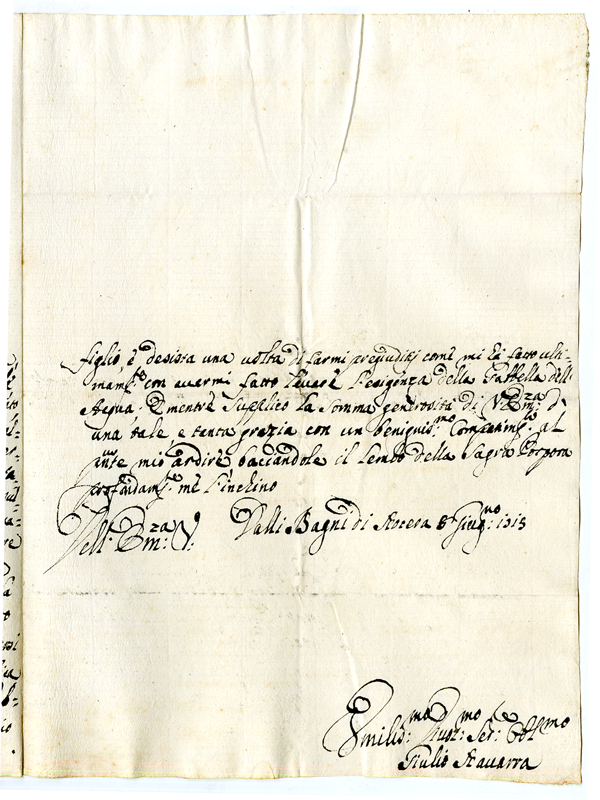 figlio, e desista una volta di farmi pregiuditij come mi hà fatto ulti-
mamte con avermi fatto levare l'esigenza della Gabbella dell'
Acqua. E mentre supplico la somma generosità di V: Emza: d'
una tale, e tanta grazia con un benigniss:mo compatim:to al
mio ardire bacciandole il lembo della Sagra Porpora
profondam:te me l'inchino
Dell' Emza: V: Dalli Bagni di Nocera 8 Giug:no 1713
Humiliss:mo Ser: Obbl:mo
Giulio Navarra